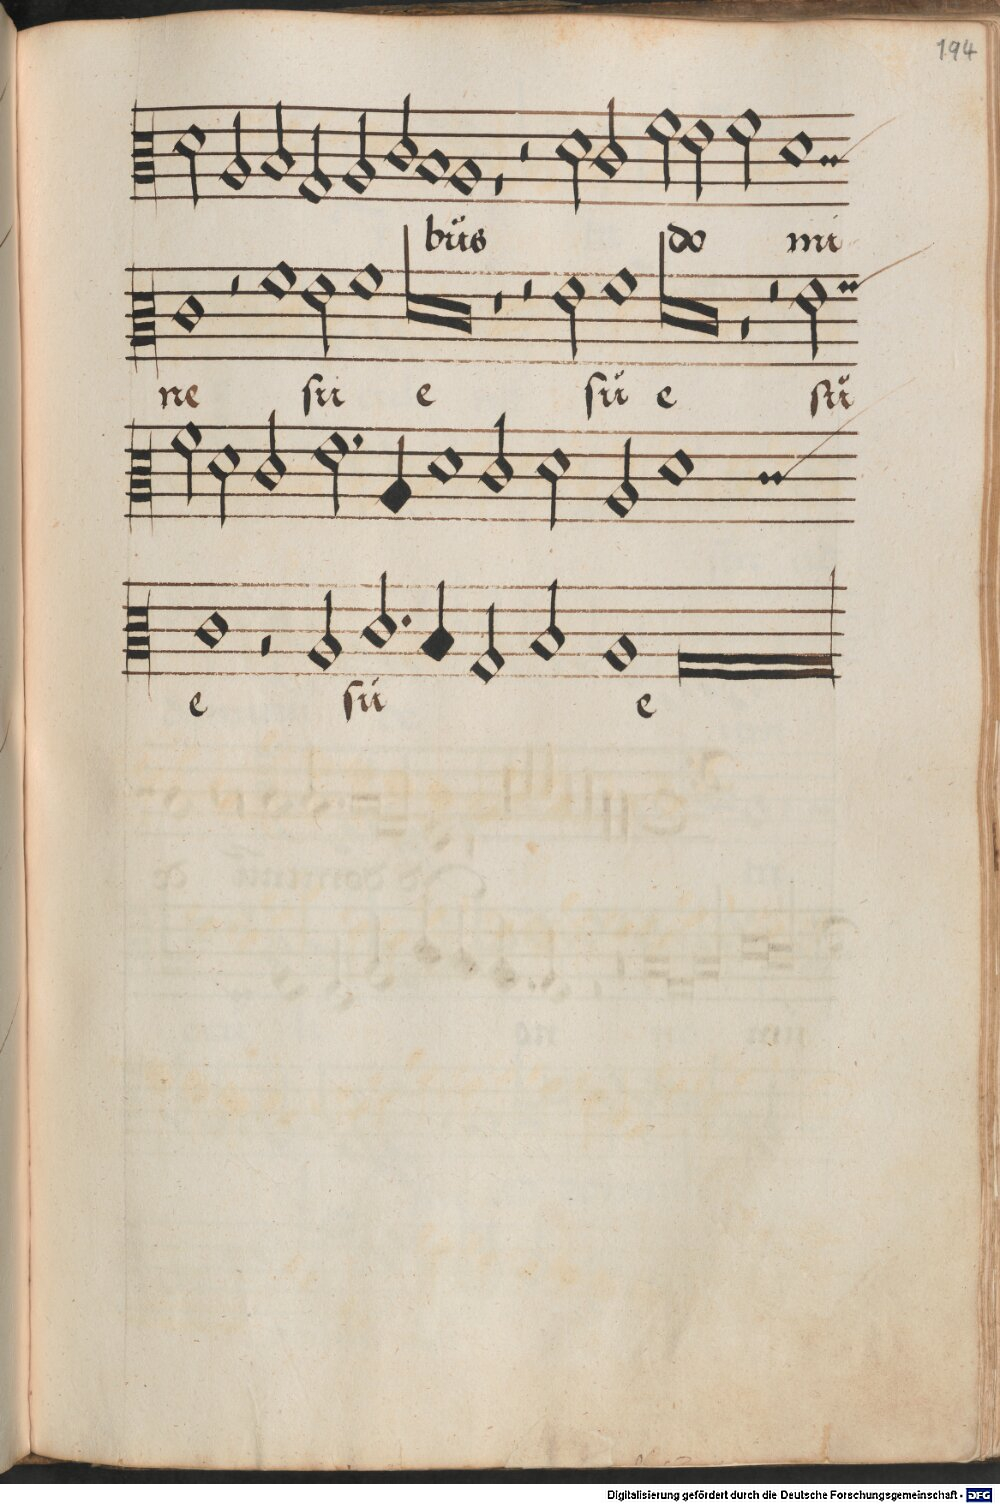 194
bus do mi
ne su e su e su
e su e
Digitalisierung gefördert durch die Deutsche Forschungsgemeinschaft - DFG